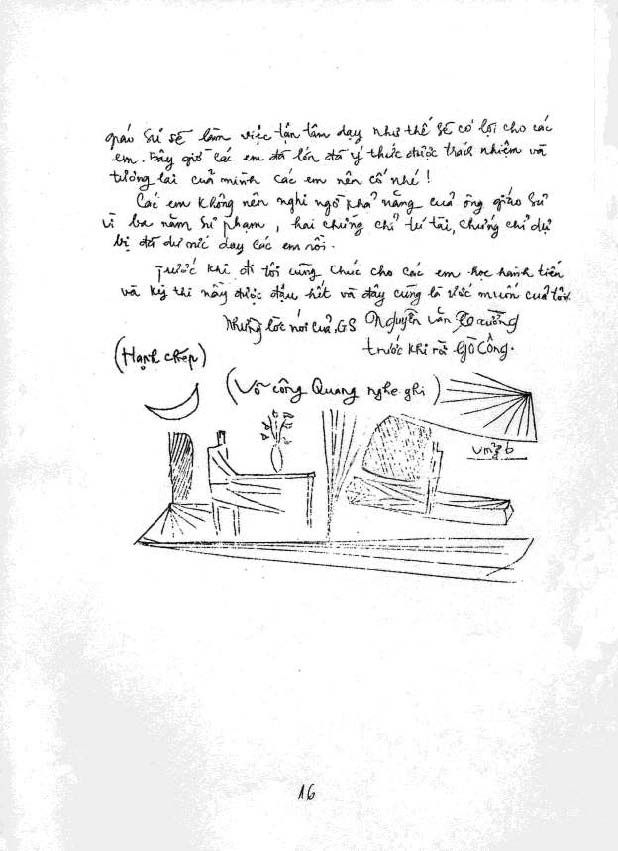 giáo sư sẽ làm việc tận tâm dạy như thế sẽ có lợi cho các
em. Bây giờ các em đã lớn đã ý thức được trách nhiệm và
tương lai của mình các em nên cố nhé!
Các em không nên nghi ngờ khả năng của ông giáo sư
vì ba năm sư phạm, hai chứng chỉ tú tài, chứng chỉ dự
bị đã dư mức dạy các em rồi.
Trước khi đi tôi cũng chúc cho các em học hành tiến
và kỳ thi này được đậu hết và đây cũng là ước muốn của tôi.
Những lời nói của GS Nguyễn văn
trước khi rời Gò Công.
(Hạnh chép)
(Võ công Quang nghe ghi)
16